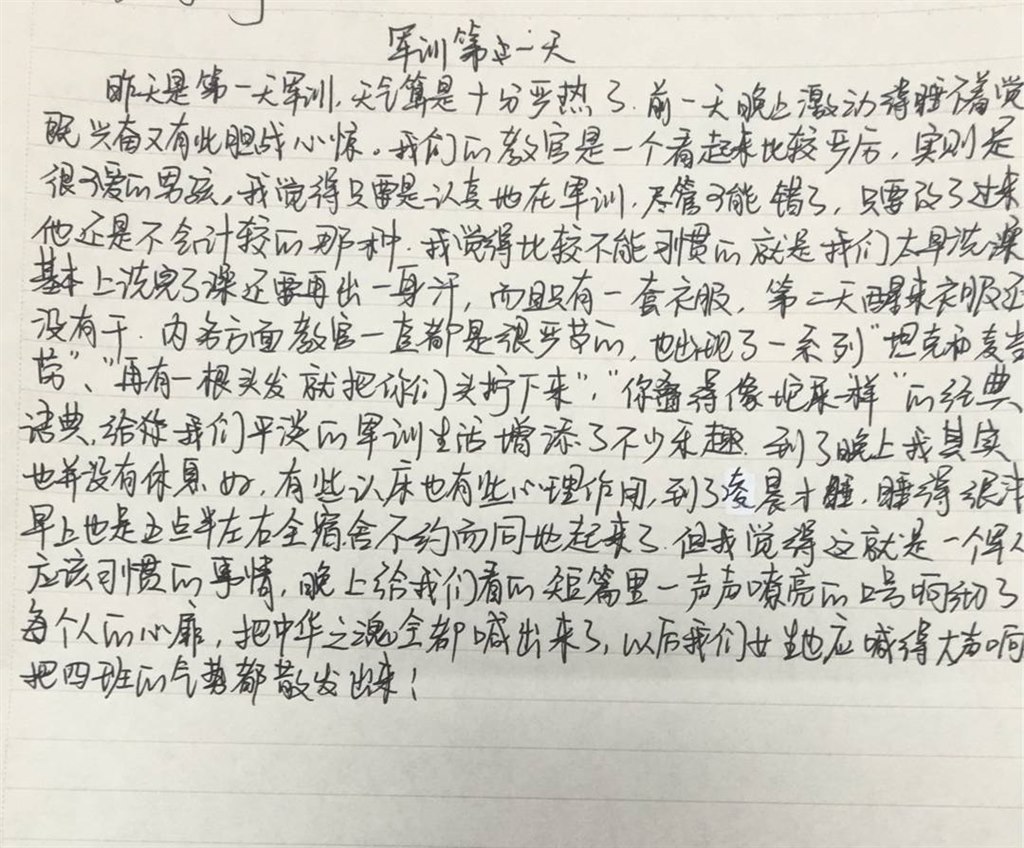 军训第一天
昨天是第一天军训,天气算是十分严热了.前一天晚上激动得睡不着觉
既兴奋又有些胆战心惊。我们的教官是一个看起来比较严厉,实则是
很可爱的男孩,我觉得只要是认真地在军训.尽管可能错了,只要改了过来
他还是不会计较的那种.我觉得比较不能习惯的就是我们太早洗澡
基本上洗完了澡还要再出一身汗,而且只有一套衣服,第二天醒来衣服还
没有干.内务方面教官一直都是很严苛的,也出现了一系列"坦克和麦当
劳"、"再有一根头发就把你们头拧下来","你叠得像坨屎一样"的经典
语典,给我们平淡的军训生活增添了不少乐趣.到了晚上我其实
也并没有休息好,有些认床也有些心理作用,到了凌晨才睡,睡得很浅
早上也是五点半左右全宿舍不约而同地起来了.但我觉得这就是一个军人
应该习惯的事情,晚上给我们看的短篇里一声声嘹亮的口号响动了
每个人的心扉,把中华之魂全都喊出来了,以后我们女生也应喊得大声啊
把四班的气势都散发出来!